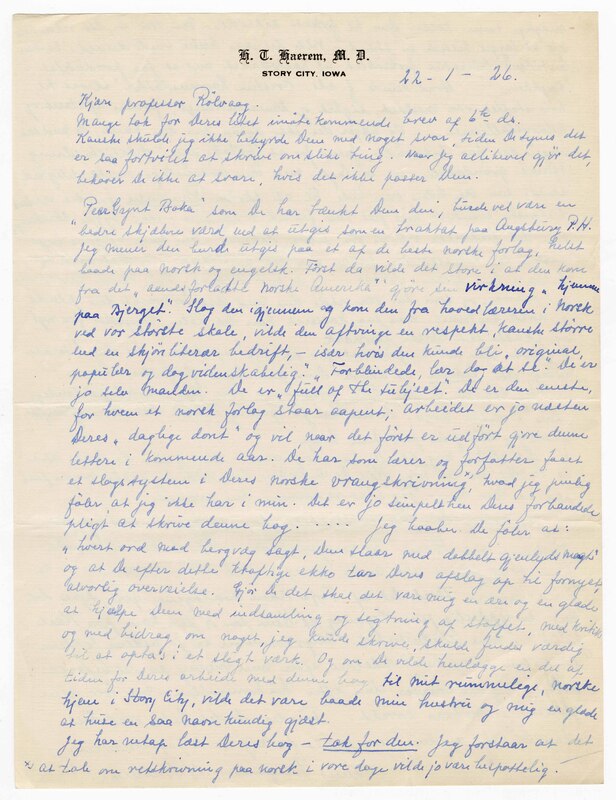 H. T. Haerem, M. D.
STORY CITY, IOWA
22 - 1 - 26.
Kjære professor Rölvaag.
Mange tak for Deres litet imötekommende brev af 6te ds.
Kanske skulde jeg ikke bebyrde Dem med noget svar, siden De synes det
er saa fortvilet at skrive om slike ting. Naar jeg allikevel gjör det,
behöver De ikke at svare, hvis det ikke passer Dem.
"Peer Gynt Boka" som De har tænkt Dem den, burde vel være en
bedre skjæbne værd end at utgis som en traktat paa Augsburg P.H.
Jeg mener den burde utgis paa et af de beste norske forlag, helst
baade paa norsk og engelsk. Först da vilde det store i at den kom
fra det "aandsforladte Norske Amerika" gjöre sin virkning "hjemme
paa Bjerget". Slog den igjennem og kom den fra hovedlæreren i Norsk
ved vor störste skole, vilde den aftvinge en respekt, kanske större
end en skjönliterær bedrift, – især hvis den kunde bli "original,
populær og dog videnskabelig". "Forblindede, lær dog at se". De er
jo selv manden. De er "full of the subject". De er den eneste,
for hvem et norsk forlag staar aapent; arbeidet er jo næsten
Deres "daglige dont" og vil naar det först er utfört gjöre denne
lettere i kommende aar. De har som lærer og forfatter faaet
et slags system i Deres norske vrangskrivning x), hvad jeg pinlig
föler at jeg ikke har i min. Det er jo simpelthen Deres forbandede
pligt at skrive denne bog. ..... Jeg haaber De föler at:
"hvert ord med bergvæg sagt, Dem slaar med dobbelt gjenlyds magt"
og at De efter dette kraftige ekko tar Deres afslag op til fornyet,
alvorlig overveielse. Gjör De det skal det være mig en ære og en glæde
at hjælpe Dem med indsamling og sigtning af stoffet, med kritik
og med bidrag om noget, jeg kunde skrive, skulde findes værdig
til at optas i et slegt værk. Og om De vilde henlægge en del af
tiden for Deres arbeide med denne bog til mit rummelige, norske
hjem i Story City, vilde det være baade min hustru og mig en glæde
at huse en saa navnkundig gjæst.
Jeg har netop læst Deres bog – tak for den. Jeg forstaar at det
x) at tale om retskrivning paa norsk i vore dage vilde jo være bespottelig.